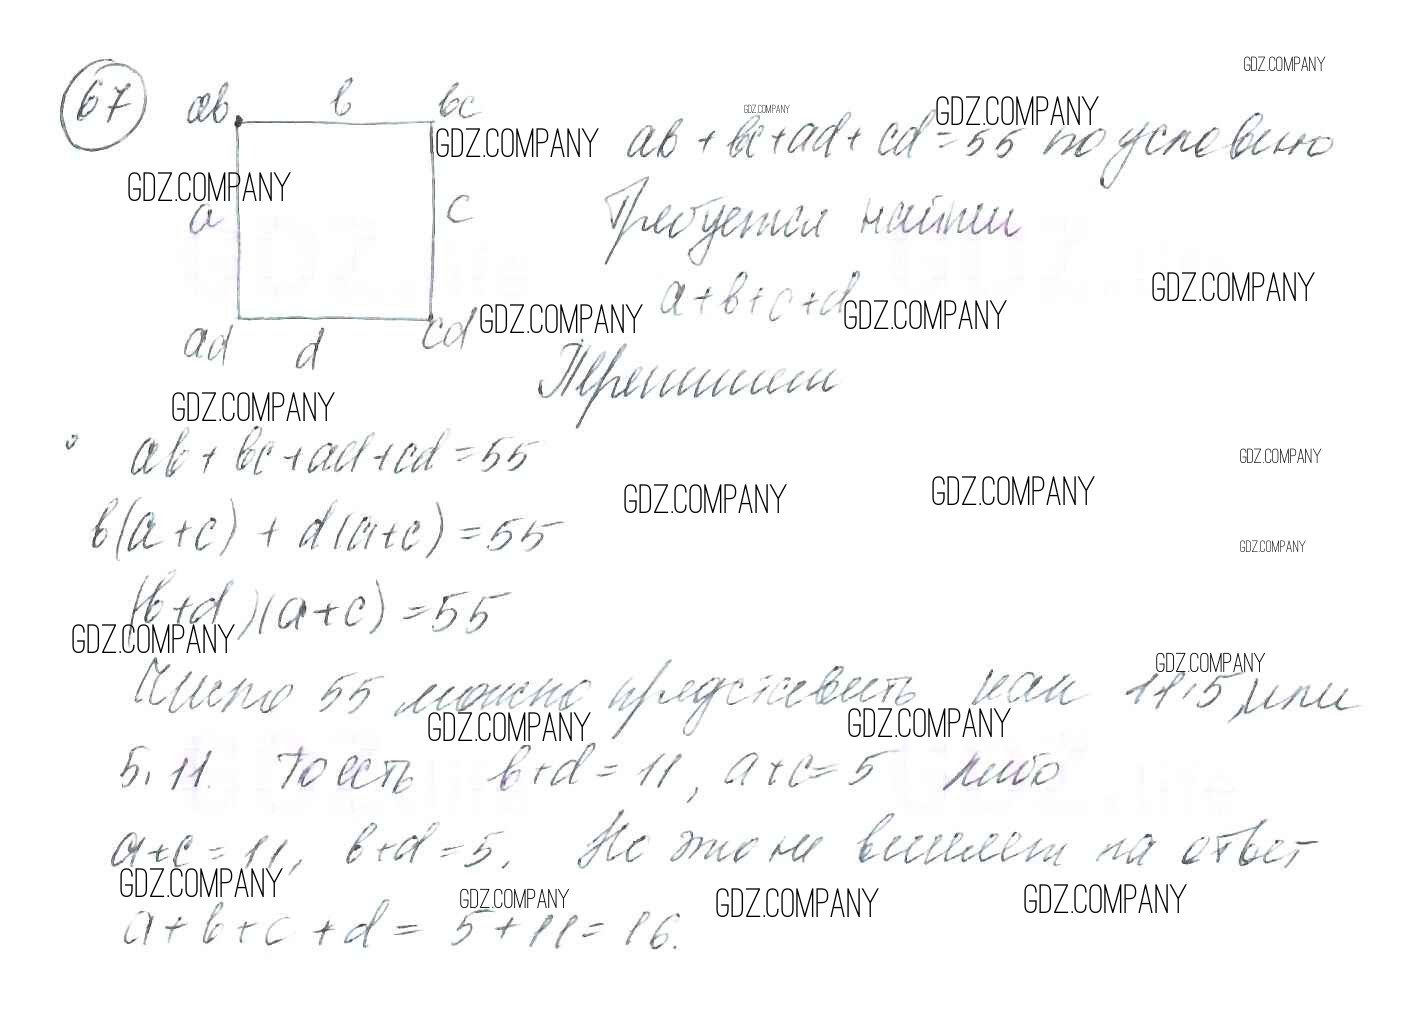 GDZ.COMPANY
67 ab b bc
GDZ.COMPANY GDZ.COMPANY
GDZ.COMPANY ab + bc + ad + cd = 55 по условию
GDZ.COMPANY
a c Требуется найти
GDZ.COMPANY
GDZ.COMPANY a + b + c + d GDZ.COMPANY
ad d cd
Перепишем
GDZ.COMPANY
ab + bc + ad + cd = 55
GDZ.COMPANY
GDZ.COMPANY GDZ.COMPANY
b(a + c) + d(a + c) = 55
GDZ.COMPANY
(b + d)(a + c) = 55
GDZ.COMPANY
GDZ.COMPANY
Число 55 можно представить как 11·5, или
GDZ.COMPANY GDZ.COMPANY
5·11. То есть b + d = 11, a + c = 5 либо
a + c = 11, b + d = 5. Но это не влияет на ответ
GDZ.COMPANY GDZ.COMPANY GDZ.COMPANY GDZ.COMPANY
a + b + c + d = 5 + 11 = 16.